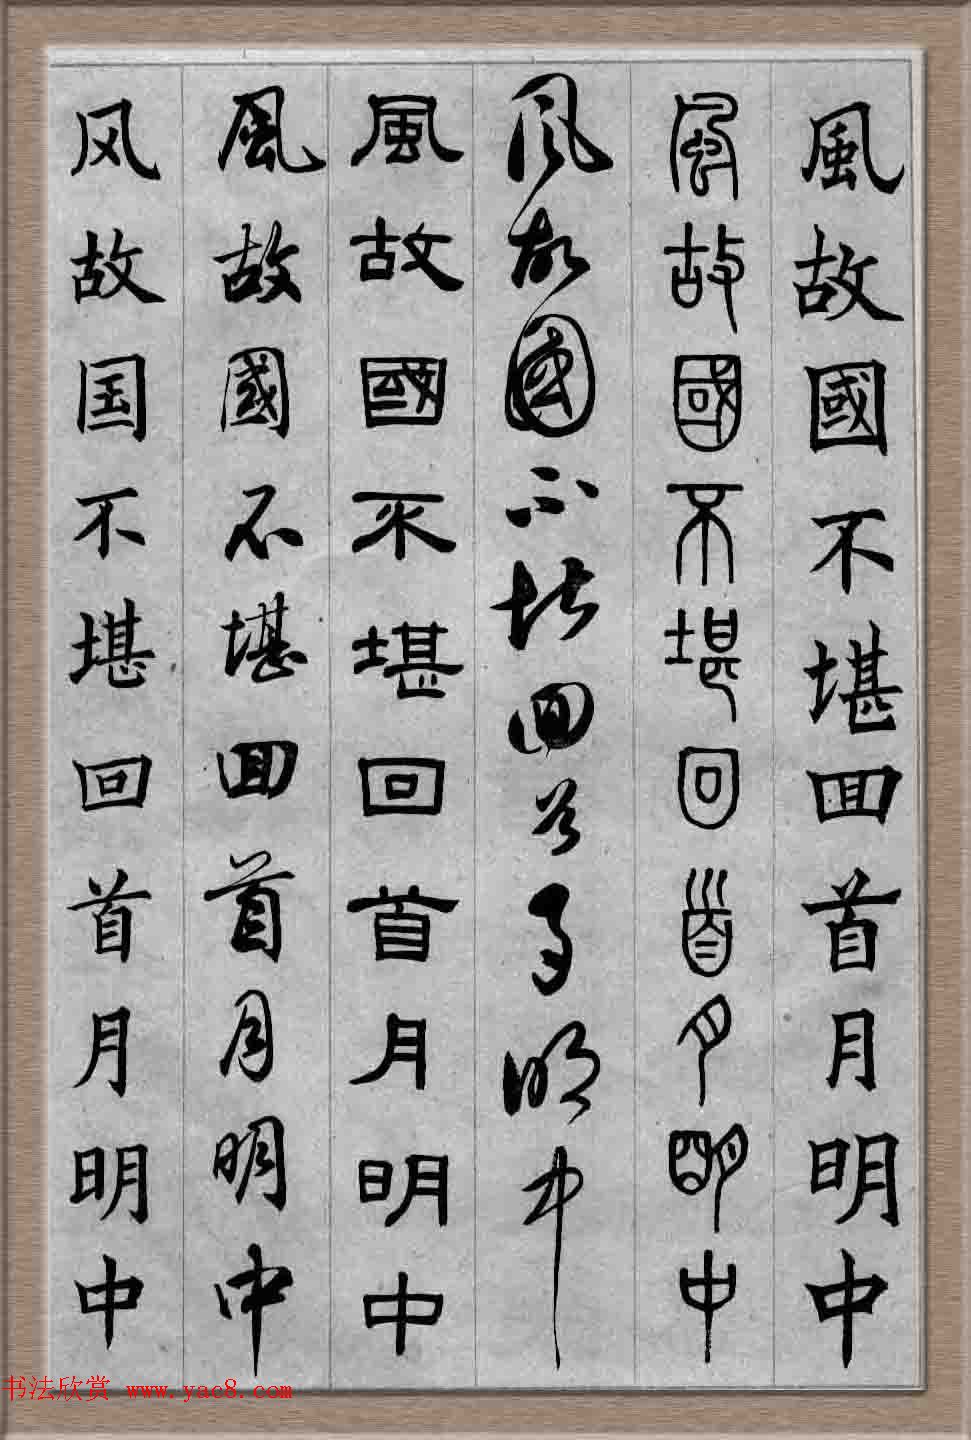 風故國不堪回首月明中
風故國不堪回首月明中
風故國不堪回首月明中
風故國不堪回首月明中
風故國不堪回首月明中
风故国不堪回首月明中
书法欣赏 www.yac8.com